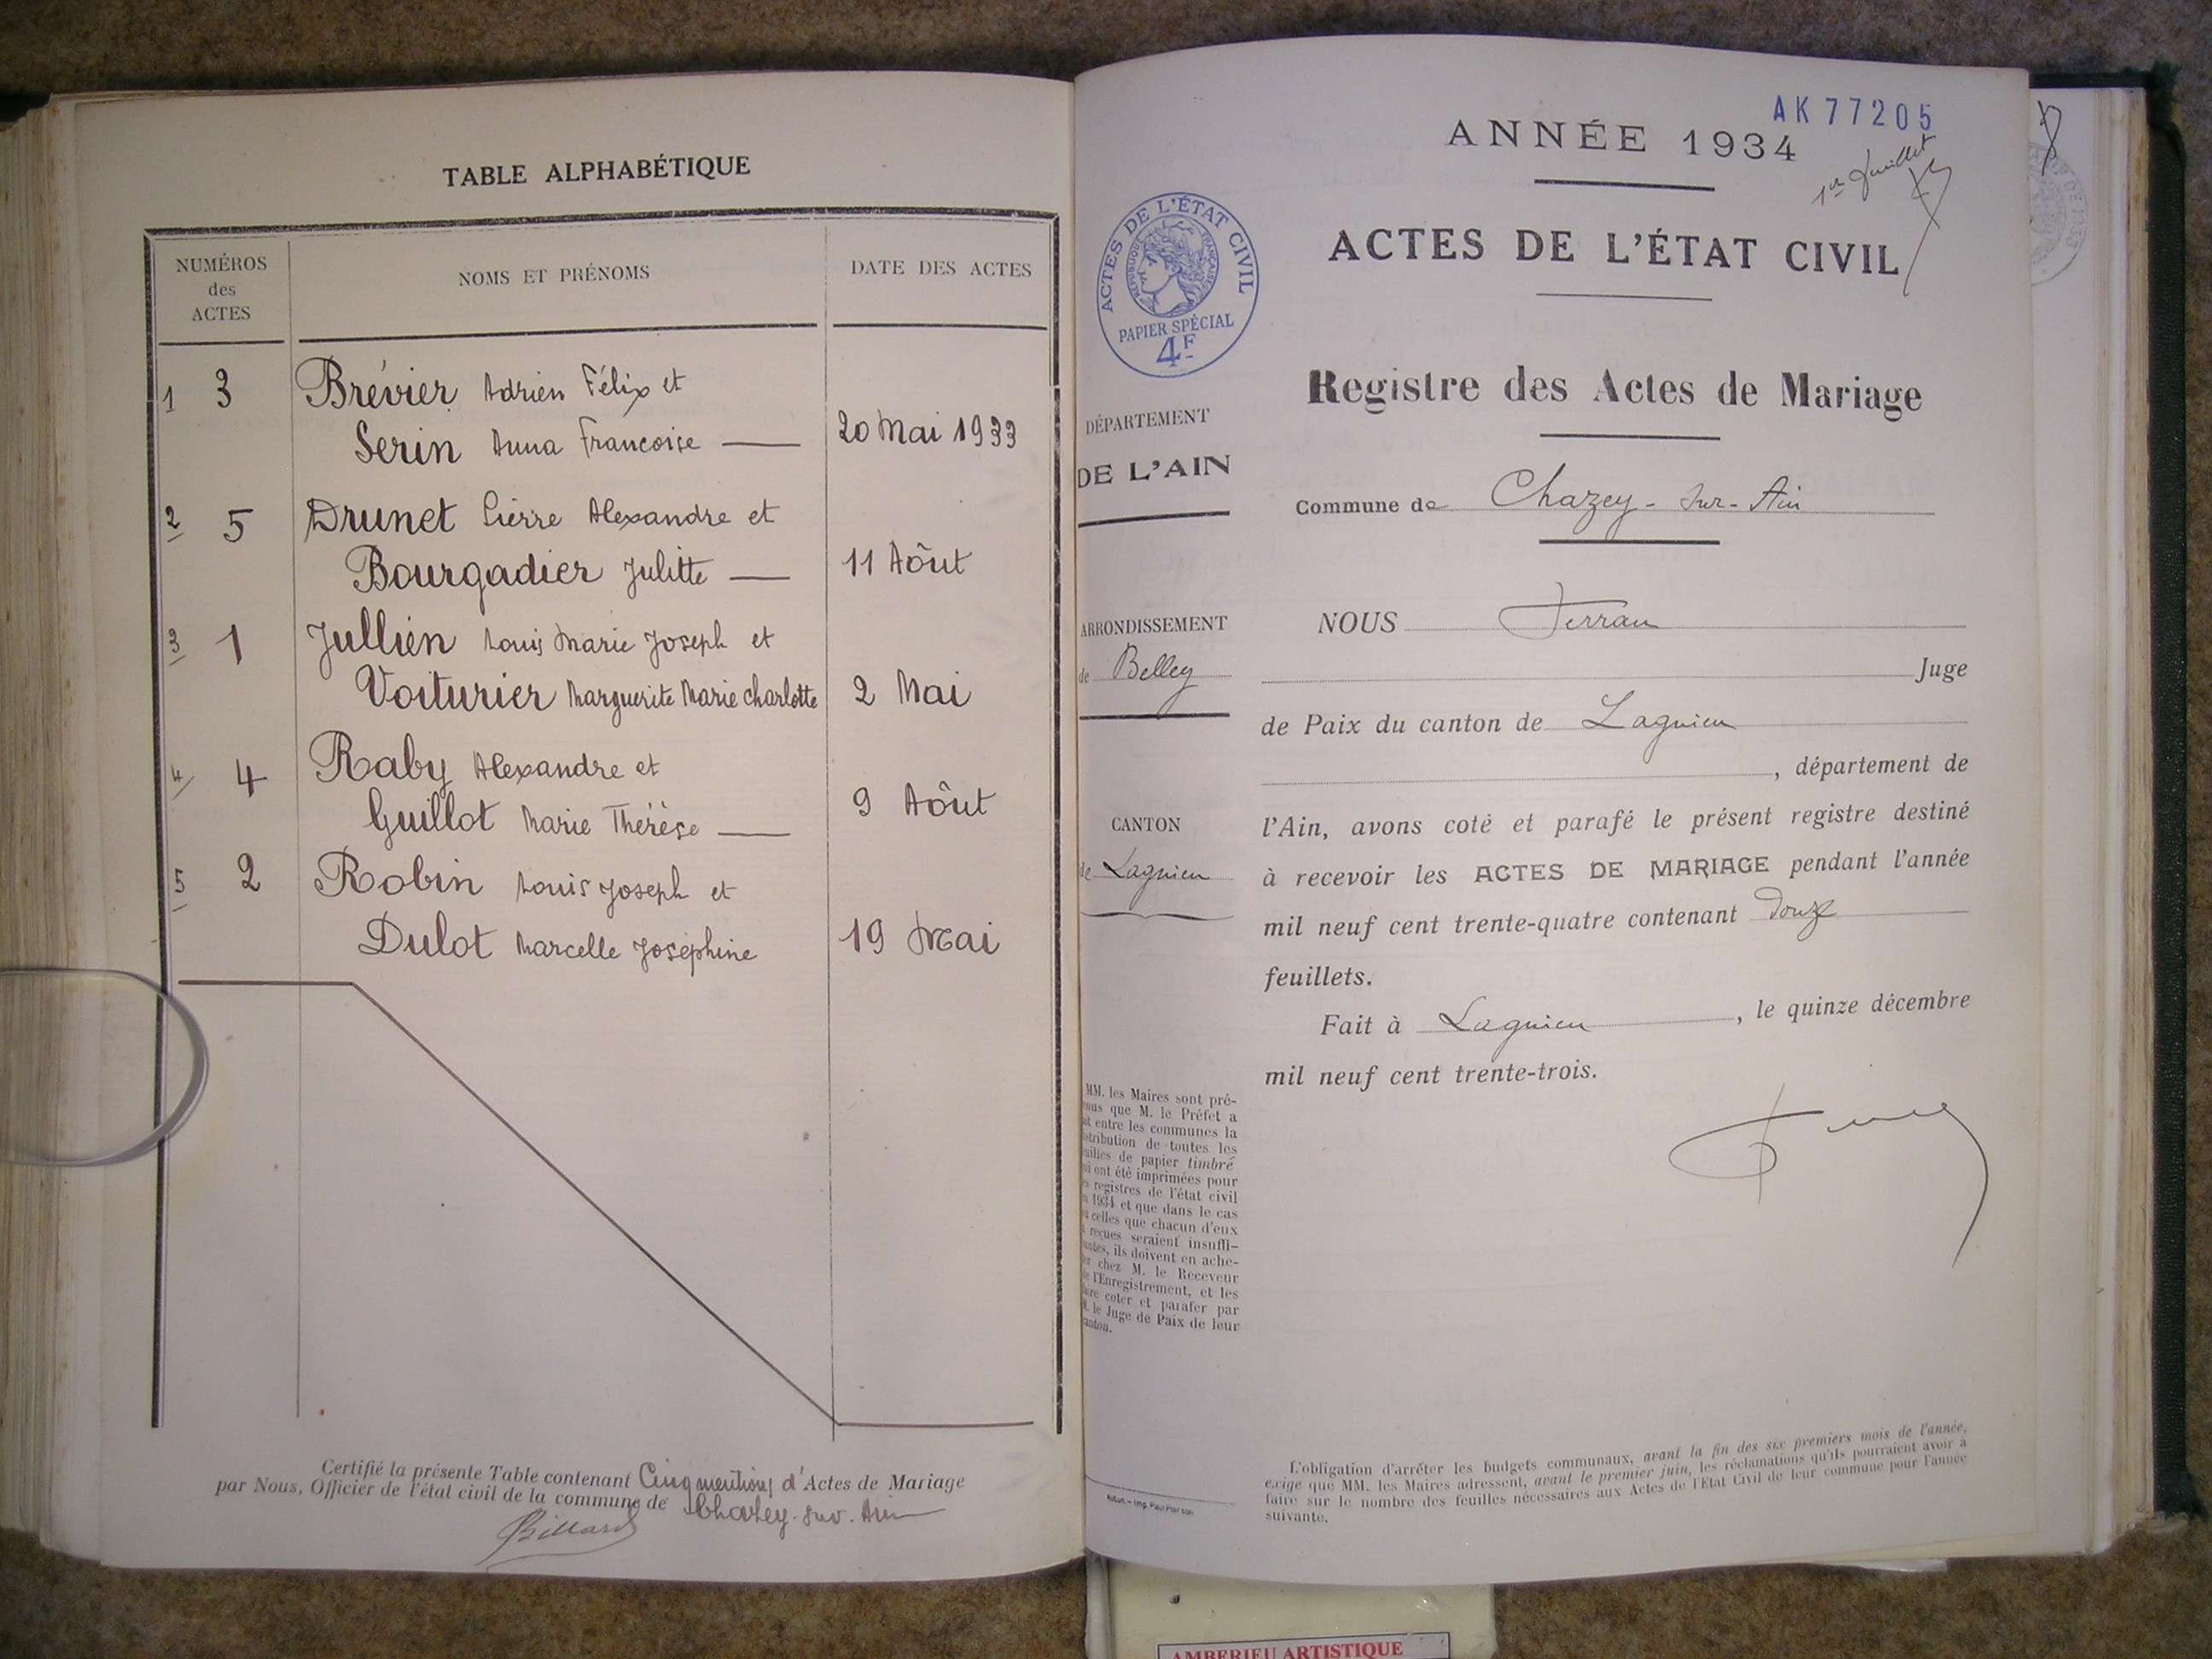 TABLE ALPHABÉTIQUE
NUMÉROS
des
ACTES
NOMS ET PRÉNOMS
DATE DES ACTES
1 3 Brévier Adrien Félix et
Serin Anna Francoise — 20 Mai 1933
2 5 Drunet Pierre Alexandre et
Bourgadier Julitte — 11 Aôut
3 1 Jullien Louis Marie Joseph et
Voiturier Marguerite Marie Charlotte 2 Mai
4 4 Raby Alexandre et
Guillot Marie Thérèse — 9 Aôut
5 2 Robin Louis Joseph et
Dulot Marcelle Joséphine 19 Mai
Certifié la présente Table contenant Cinq mentions d'Actes de Mariage
par Nous, Officier de l'état civil de la commune de Chazey-sur-Ain
Billard
AK 77205
ANNÉE 1934
1er Juillet
ACTES DE L'ÉTAT CIVIL
ACTES DE L'ÉTAT CIVIL
RÉPUBLIQUE FRANÇAISE
PAPIER SPÉCIAL
4F
Registre des Actes de Mariage
DÉPARTEMENT
DE L'AIN
Commune de Chazey-sur-Ain
ARRONDISSEMENT
de Belley
CANTON
de Lagnieu
NOUS Ferran
Juge
de Paix du canton de Lagnieu
, département de
l'Ain, avons coté et parafé le présent registre destiné
à recevoir les ACTES DE MARIAGE pendant l'année
mil neuf cent trente-quatre contenant douze
feuillets.
Fait à Lagnieu, le quinze décembre
mil neuf cent trente-trois.
MM. les Maires sont pré-
nus que M. le Préfet a
it entre les communes la
stribution de toutes les
uilles de papier timbré
ui ont été imprimées pour
s registres de l'état civil
n 1934 et que dans le cas
ù celles que chacun d'eux
a reçues seraient insuffi-
antes, ils doivent en ache-
er chez M. le Receveur
e l'Enregistrement, et les
aire coter et parafer par
M. le Juge de Paix de leur
canton.
L'obligation d'arrêter les budgets communaux, avant la fin des six premiers mois de l'année,
exige que MM. les Maires adressent, avant le premier juin, les réclamations qu'ils pourraient avoir à
faire sur le nombre des feuilles nécessaires aux Actes de l'État Civil de leur commune pour l'année
suivante.
AMBERIEU ARTISTIQUE